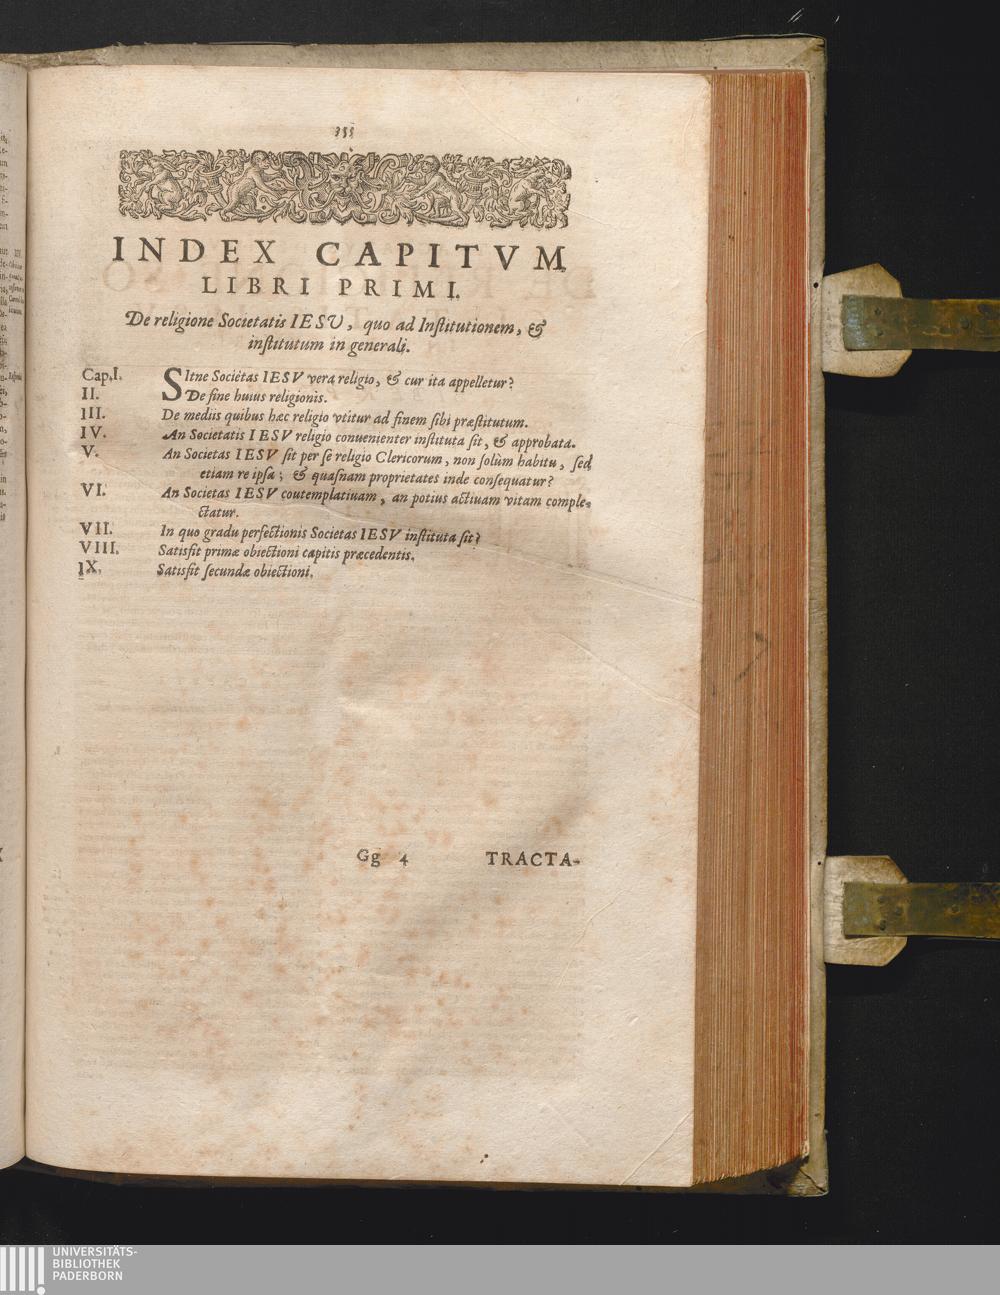 355
INDEX CAPITVM
LIBRI PRIMI.
De religione Societatis IESU, quo ad Institutionem, &
institutum in generali.
Cap. I. SItne Societas IESV vera religio, & cur ita appelletur?
II. De fine huius religionis.
III. De mediis quibus hæc religio vtitur ad finem sibi præstitutum.
IV. An Societatis IESV religio conuenienter instituta sit, & approbata.
V. An Societas IESV sit per se religio Clericorum, non solùm habitu, sed
etiam re ipsa; & quasnam proprietates inde consequatur?
VI. An Societas IESV coutemplatiuam, an potius actiuam vitam comple-
ctatur.
VII. In quo gradu perfectionis Societas IESV instituta sit?
VIII. Satisfit primæ obiectioni capitis præcedentis.
IX. Satisfit secundæ obiectioni.
Gg 4 TRACTA-
UNIVERSITÄTS-
BIBLIOTHEK
PADERBORN